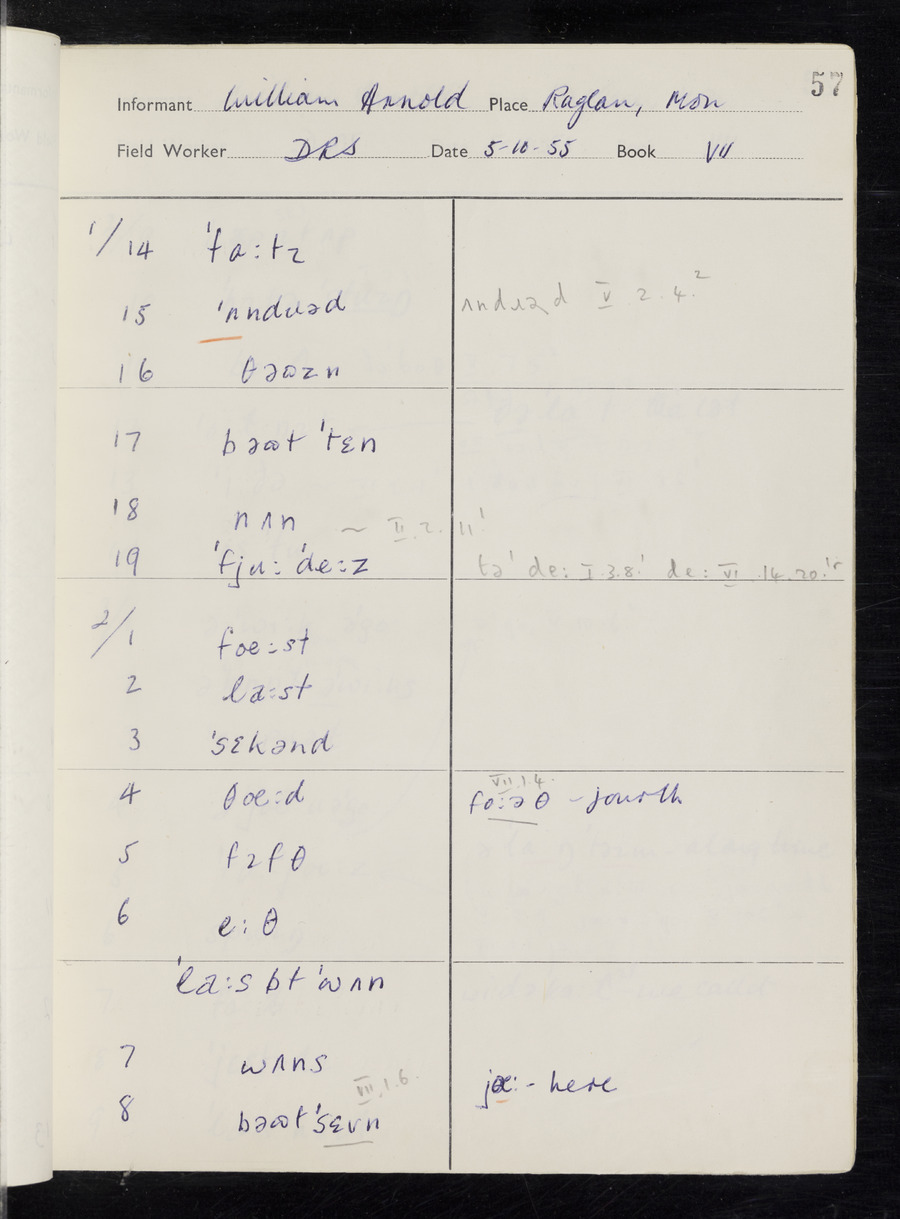 57
Informant William Arnold Place Raglan, Mon
Field Worker DRS Date 5-10-55 Book VII
1/14 ˈfɑ:tɪ
15 ˈʌndɹəd ʌndɹəd V 2.4.²
16 θəʊzn
17 bəʊt ˈtɛn
18 nʌn ~ II.2.11¹
19 ˈfju: ˈde:z tə ˈde: I.3.8¹ de: VI.14.20.¹ʳ
2/1 fœ:st
2 la:st
3 ˈsɛkənd
4 θœ:d VII.1.4. fo:ə θ - fourth
5 fɪfθ
6 e:θ
ˈla:s bt ˈwʌn
7 wʌns
8 bəʊt ˈsɛvn VII.1.6. jœ: - here